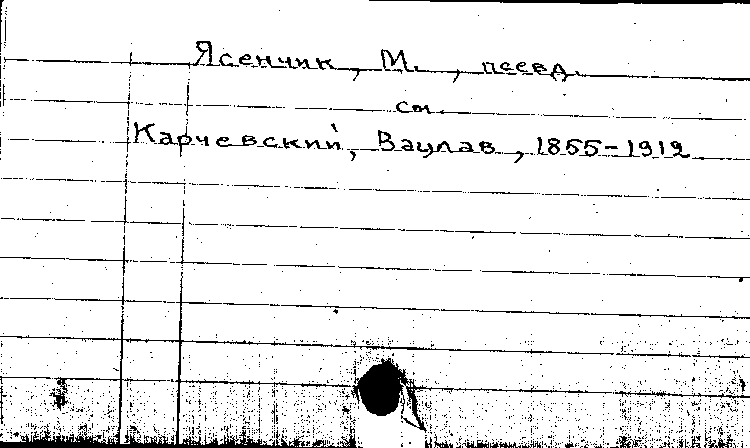 Ясенчик, М., псевд.
см.
Карчевский, Вацлав, 1855-1912